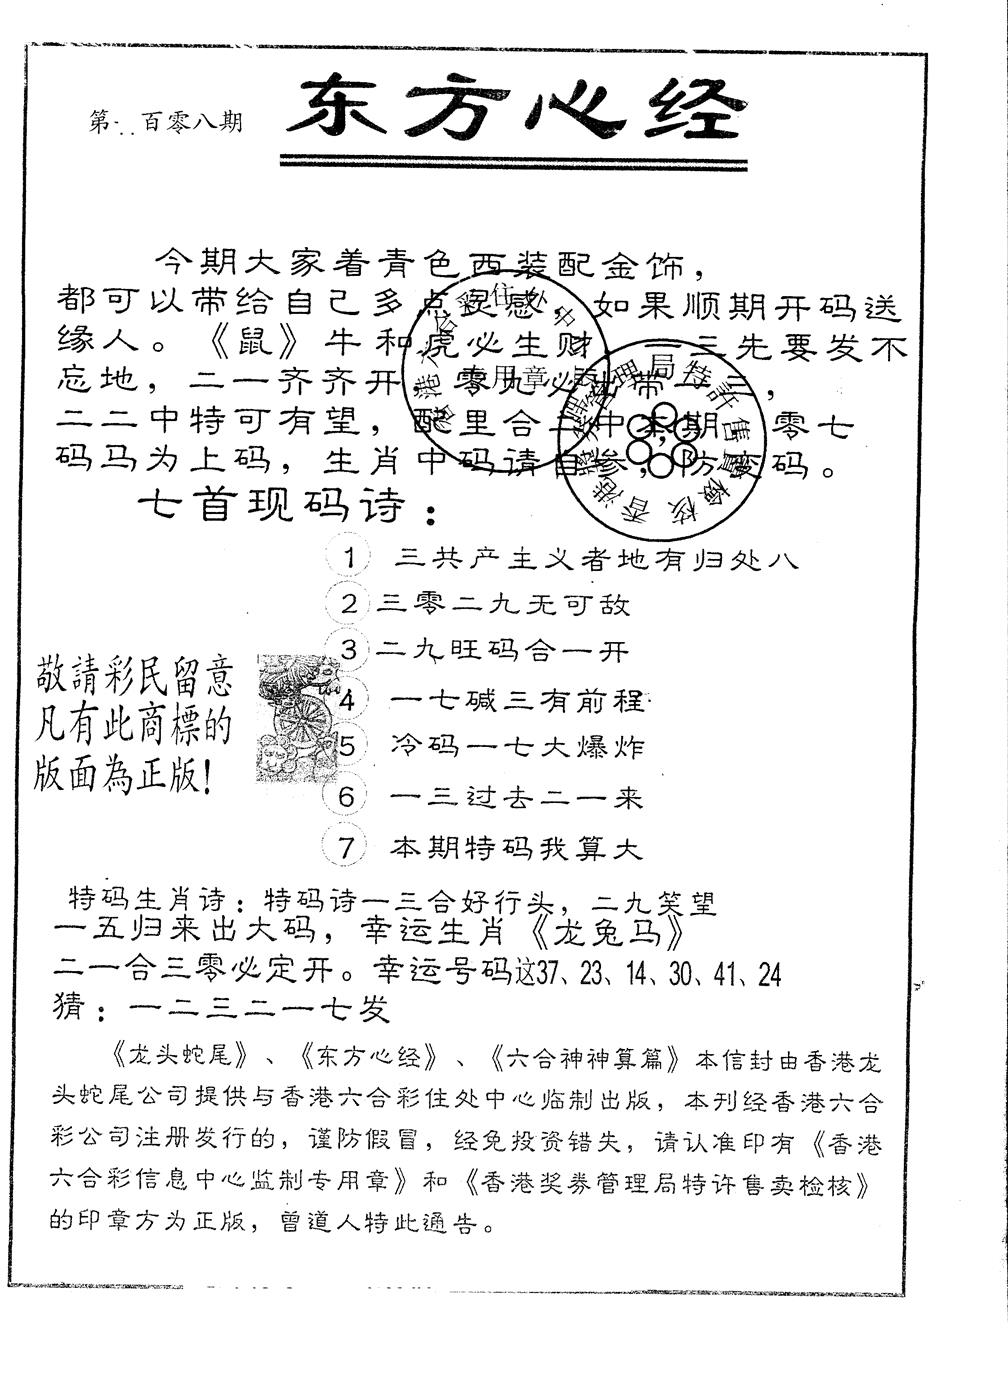 第一百零八期
东方心经
今期大家着青色西装配金饰，
都可以带给自己多点灵感，如果顺期开码送
缘人。《鼠》牛和虎必生财，一三先要发不
忘地，二一齐齐开，零九必出带二三，
二二中特可有望，配里合二中本期，零七
码马为上码，生肖中码请自参，防变码。
七首现码诗：
1 三共产主义者地有归处八
2 三零二九无可敌
3 二九旺码合一开
4 一七碱三有前程
5 冷码一七大爆炸
6 一三过去二一来
7 本期特码我算大
敬請彩民留意
凡有此商標的
版面為正版!
特码生肖诗：特码诗一三合好行头，二九笑望
一五归来出大码，幸运生肖《龙兔马》
二一合三零必定开。幸运号码这37、23、14、30、41、24
猜：一二三二一七发
《龙头蛇尾》、《东方心经》、《六合神神算篇》本信封由香港龙
头蛇尾公司提供与香港六合彩住处中心临制出版，本刊经香港六合
彩公司注册发行的，谨防假冒，经免投资错失，请认准印有《香港
六合彩信息中心监制专用章》和《香港奖券管理局特许售卖检核》
的印章方为正版，曾道人特此通告。
用章
香港獎券管理局特許售賣檢核